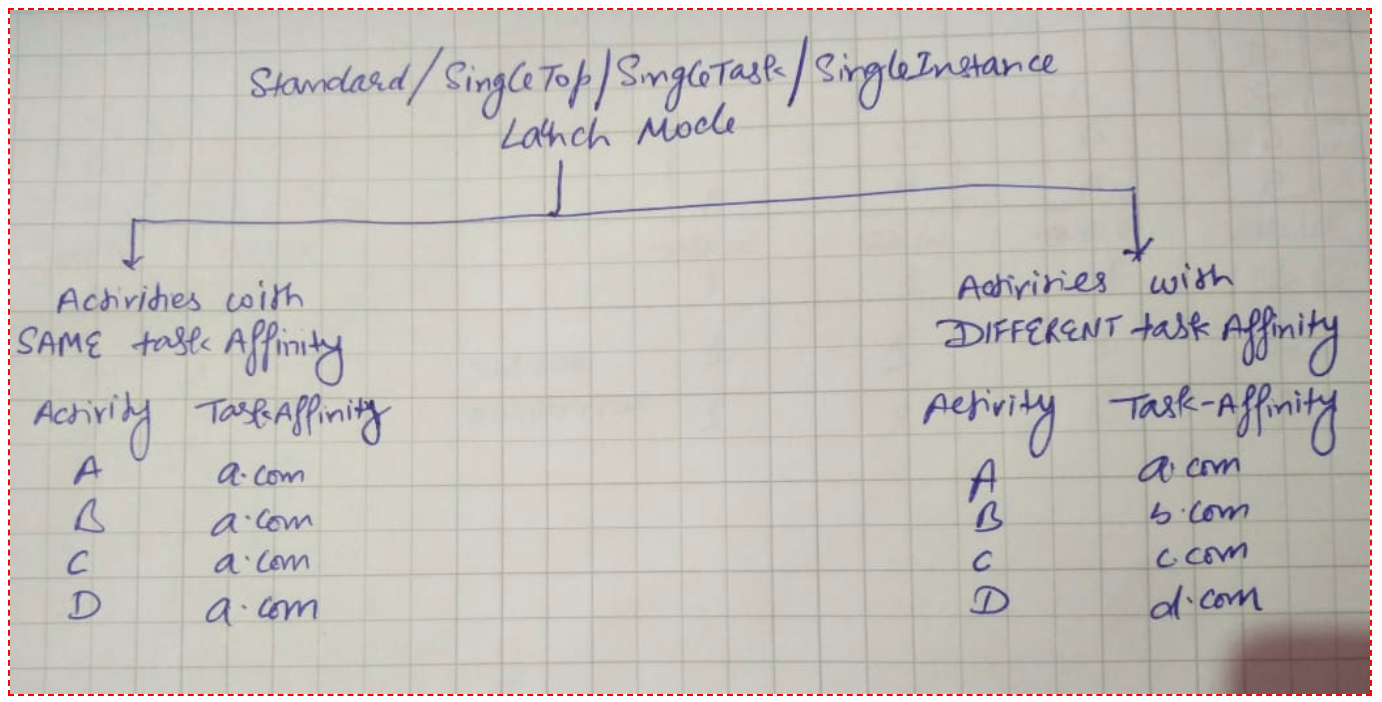 Standard/SingleTop/SingleTask/SingleInstance
Launch Mode
Activities with
SAME task Affinity
Activity TaskAffinity
A a.com
B a.com
C a.com
D a.com
Activities with
DIFFERENT task Affinity
Activity Task-Affinity
A a.com
B b.com
C c.com
D d.com